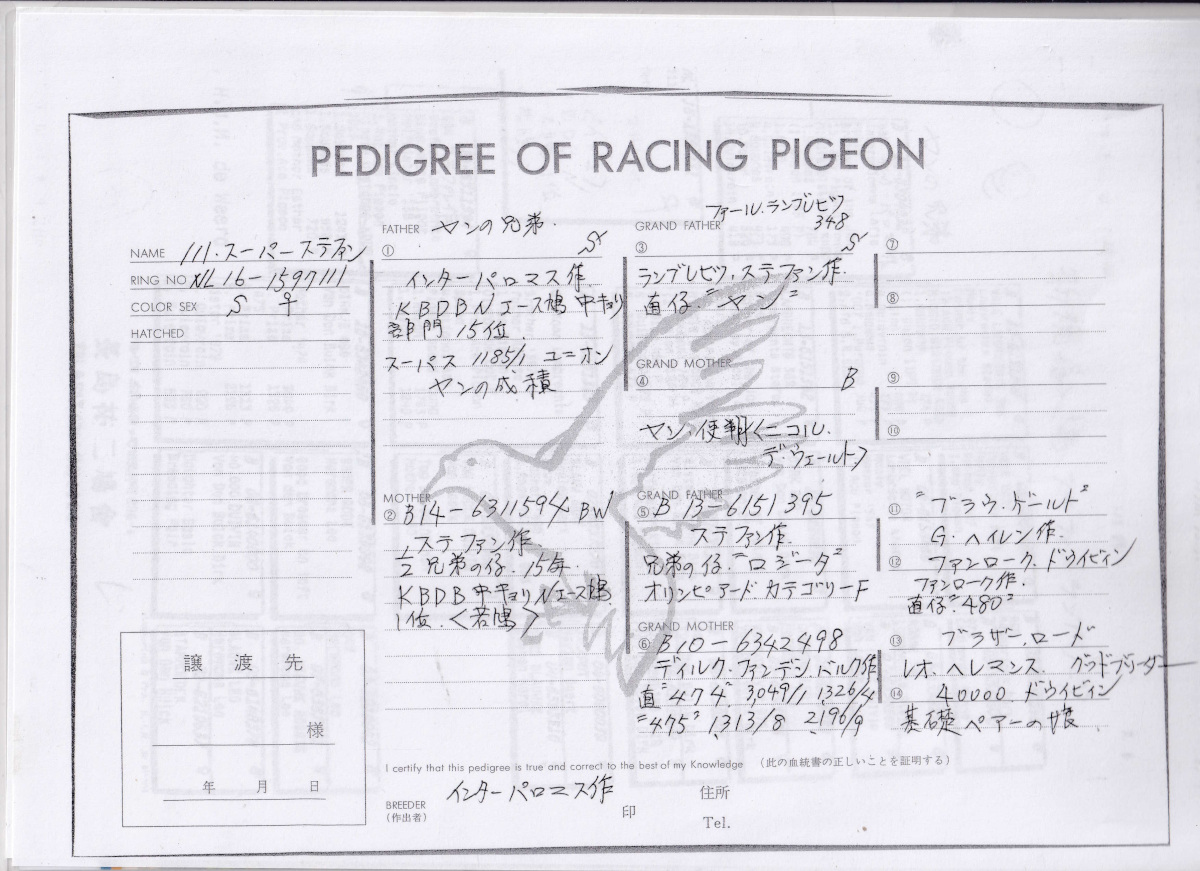 PEDIGREE OF RACING PIGEON
NAME 111.スーパーステファン
RING NO NL 16-1597111
COLOR SEX S ♀
HATCHED
FATHER ヤンの兄弟.
① S
インターパロマス作.
KBDB Nエース鳩 中キョリ
部門 15位.
スーパス 1185/1 ユニオン
ヤンの成績
MOTHER
② B14-6311594 BW
ステファン作.
1/2兄弟の仔. 15年.
KBDB 中キョリNエース鳩
1位.<若鳩>
ファール.ランブレビツ
GRAND FATHER 348
③ S
ランブレビツ.ステファン作.
直仔."ヤン"
GRAND MOTHER
④ B
ヤン.使翔<ニコル.
デ.ウェールト>
GRAND FATHER
⑤ B 13-6151395
ステファン作.
兄弟の仔."ロジータ"
オリンピアード カテゴリーF
GRAND MOTHER
⑥ B10-6342498
ディルク.ファンデン.バルク作
直"474" 3,049/1 1,326/4
"475" 1,313/8 2,196/9
⑦
⑧
⑨
⑩
⑪ "ブラウ.ゲールト"
G.ヘイレン作.
⑫ ファンローク.ドウイビィン
ファンローク作.
直仔"480"
⑬ ブラザー.ロード
レオ.ヘレマンス. グッドブリーダー
⑭ 40000 ドウイビィン
基礎ペアーの娘
譲渡先
様
年 月 日
I certify that this pedigree is true and correct to the best of my Knowledge (此の血統書の正しいことを証明する)
BREEDER インターパロマス作
(作出者) 印
住所
Tel.